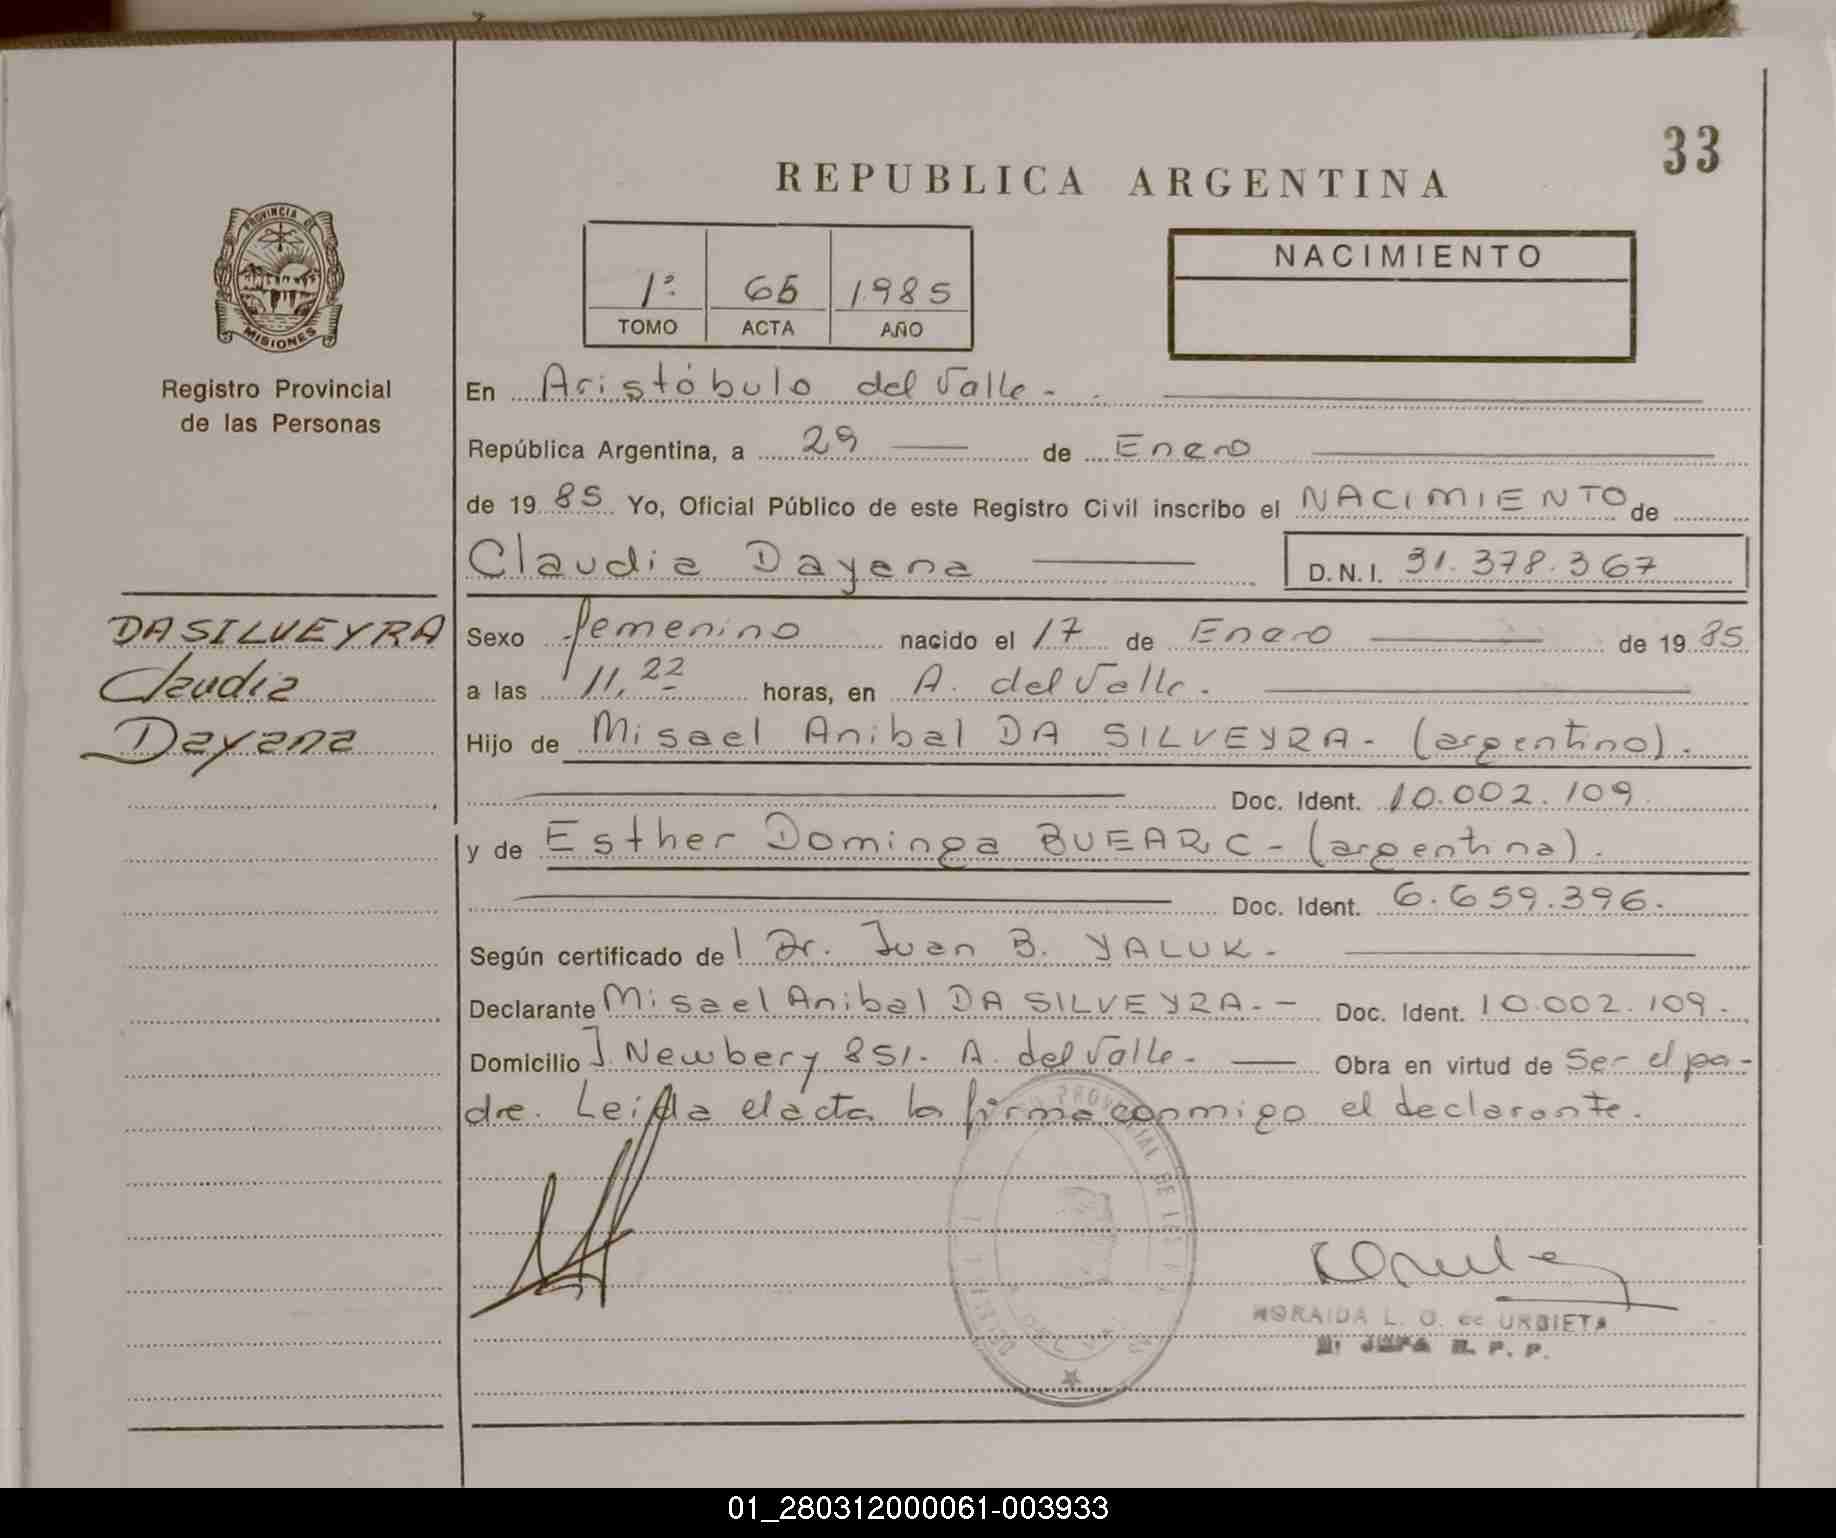 33
REPUBLICA ARGENTINA
PROVINCIA DE
MISIONES
Registro Provincial
de las Personas
1º 65 1985
TOMO ACTA AÑO
NACIMIENTO
En Aristóbulo del Valle -
República Argentina, a 29 de Enero
de 19 85 Yo, Oficial Público de este Registro Civil inscribo el NACIMIENTO de
Claudia Dayana D.N.I. 31.378.367
DA SILVEYRA
Claudia
Dayana
Sexo femenino nacido el 17 de Enero de 19 85
a las 11,22 horas, en A. del Valle.
Hijo de Misael Anibal DA SILVEYRA - (argentino).
Doc. Ident. 10.002.109
y de Esther Dominga BUEARC - (argentina).
Doc. Ident. 6.659.396.
Según certificado de Dr. Juan B. YALUK -
Declarante Misael Anibal DA SILVEYRA - - Doc. Ident. 10.002.109.
Domicilio J. Newbery 851. A. del Valle - Obra en virtud de Ser el pa-
dre. Leída el acta la firma conmigo el declarante.
PROVINCIAL DE LAS
L. O. de URBIETA
JEFA R. P. P.
01_280312000061-003933